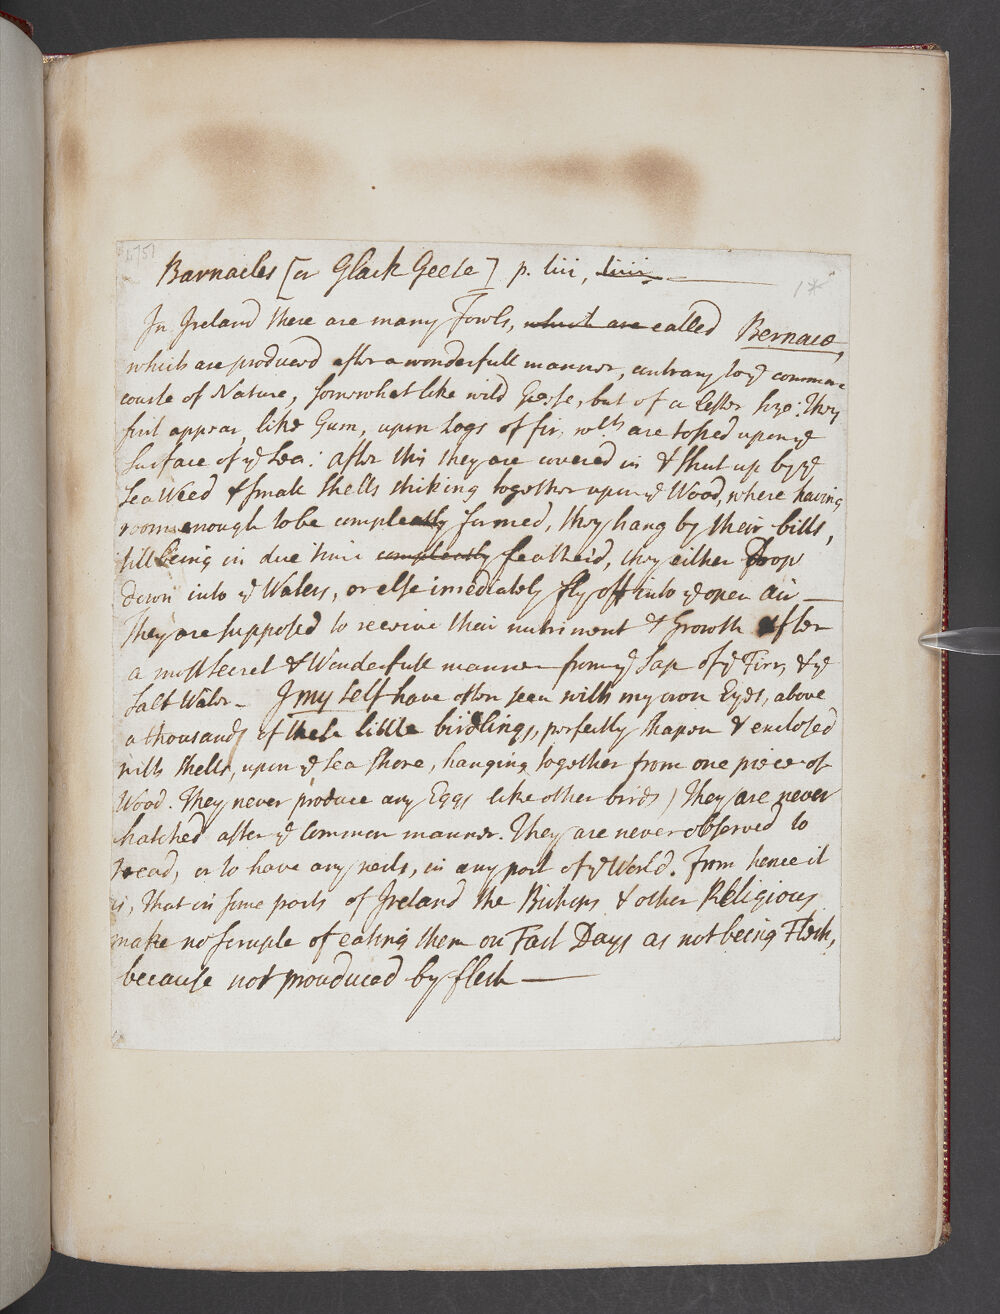 4751
Barnacles [or Glack Geese] p. liii, liiii.
1*
In Ireland there are many Fowls, which are called Bernacæ,
which are produced after a wonderfull manner, contrary to ye common
course of Nature, somewhat like wild Geese, but of a lesser size: They
first appear, like Gum, upon Logs of fir, wch are tossed upon ye
surface of ye sea: after this they are covered in & shut up by ye
sea weed & small shells sticking together upon ye Wood, where having
room enough to be compleatly formed, they hang by their bills,
till being in due time compleatly feather'd, they either Drop
down into ye Waters, or else imediately fly off into ye open air —
They are supposed to receive their nutriment & Growth after
a most secret & Wonderfull manner from ye Sap of ye Firr, & ye
salt Water — I my self have often seen with my own Eyes, above
a thousand of these little birdlings, perfectly shapen & enclosed
with shells, upon ye sea shore, hanging together from one piece of
Wood. They never produce any Eggs like other birds) They are never
hatched after ye common manner. They are never observed to
tread, or to have any nests, in any part of ye World. From hence it
is, That in some parts of Ireland the Bishops & other Religious
make no scruple of eating them on Fast Days as not being Flesh,
because not prouduced by flesh —